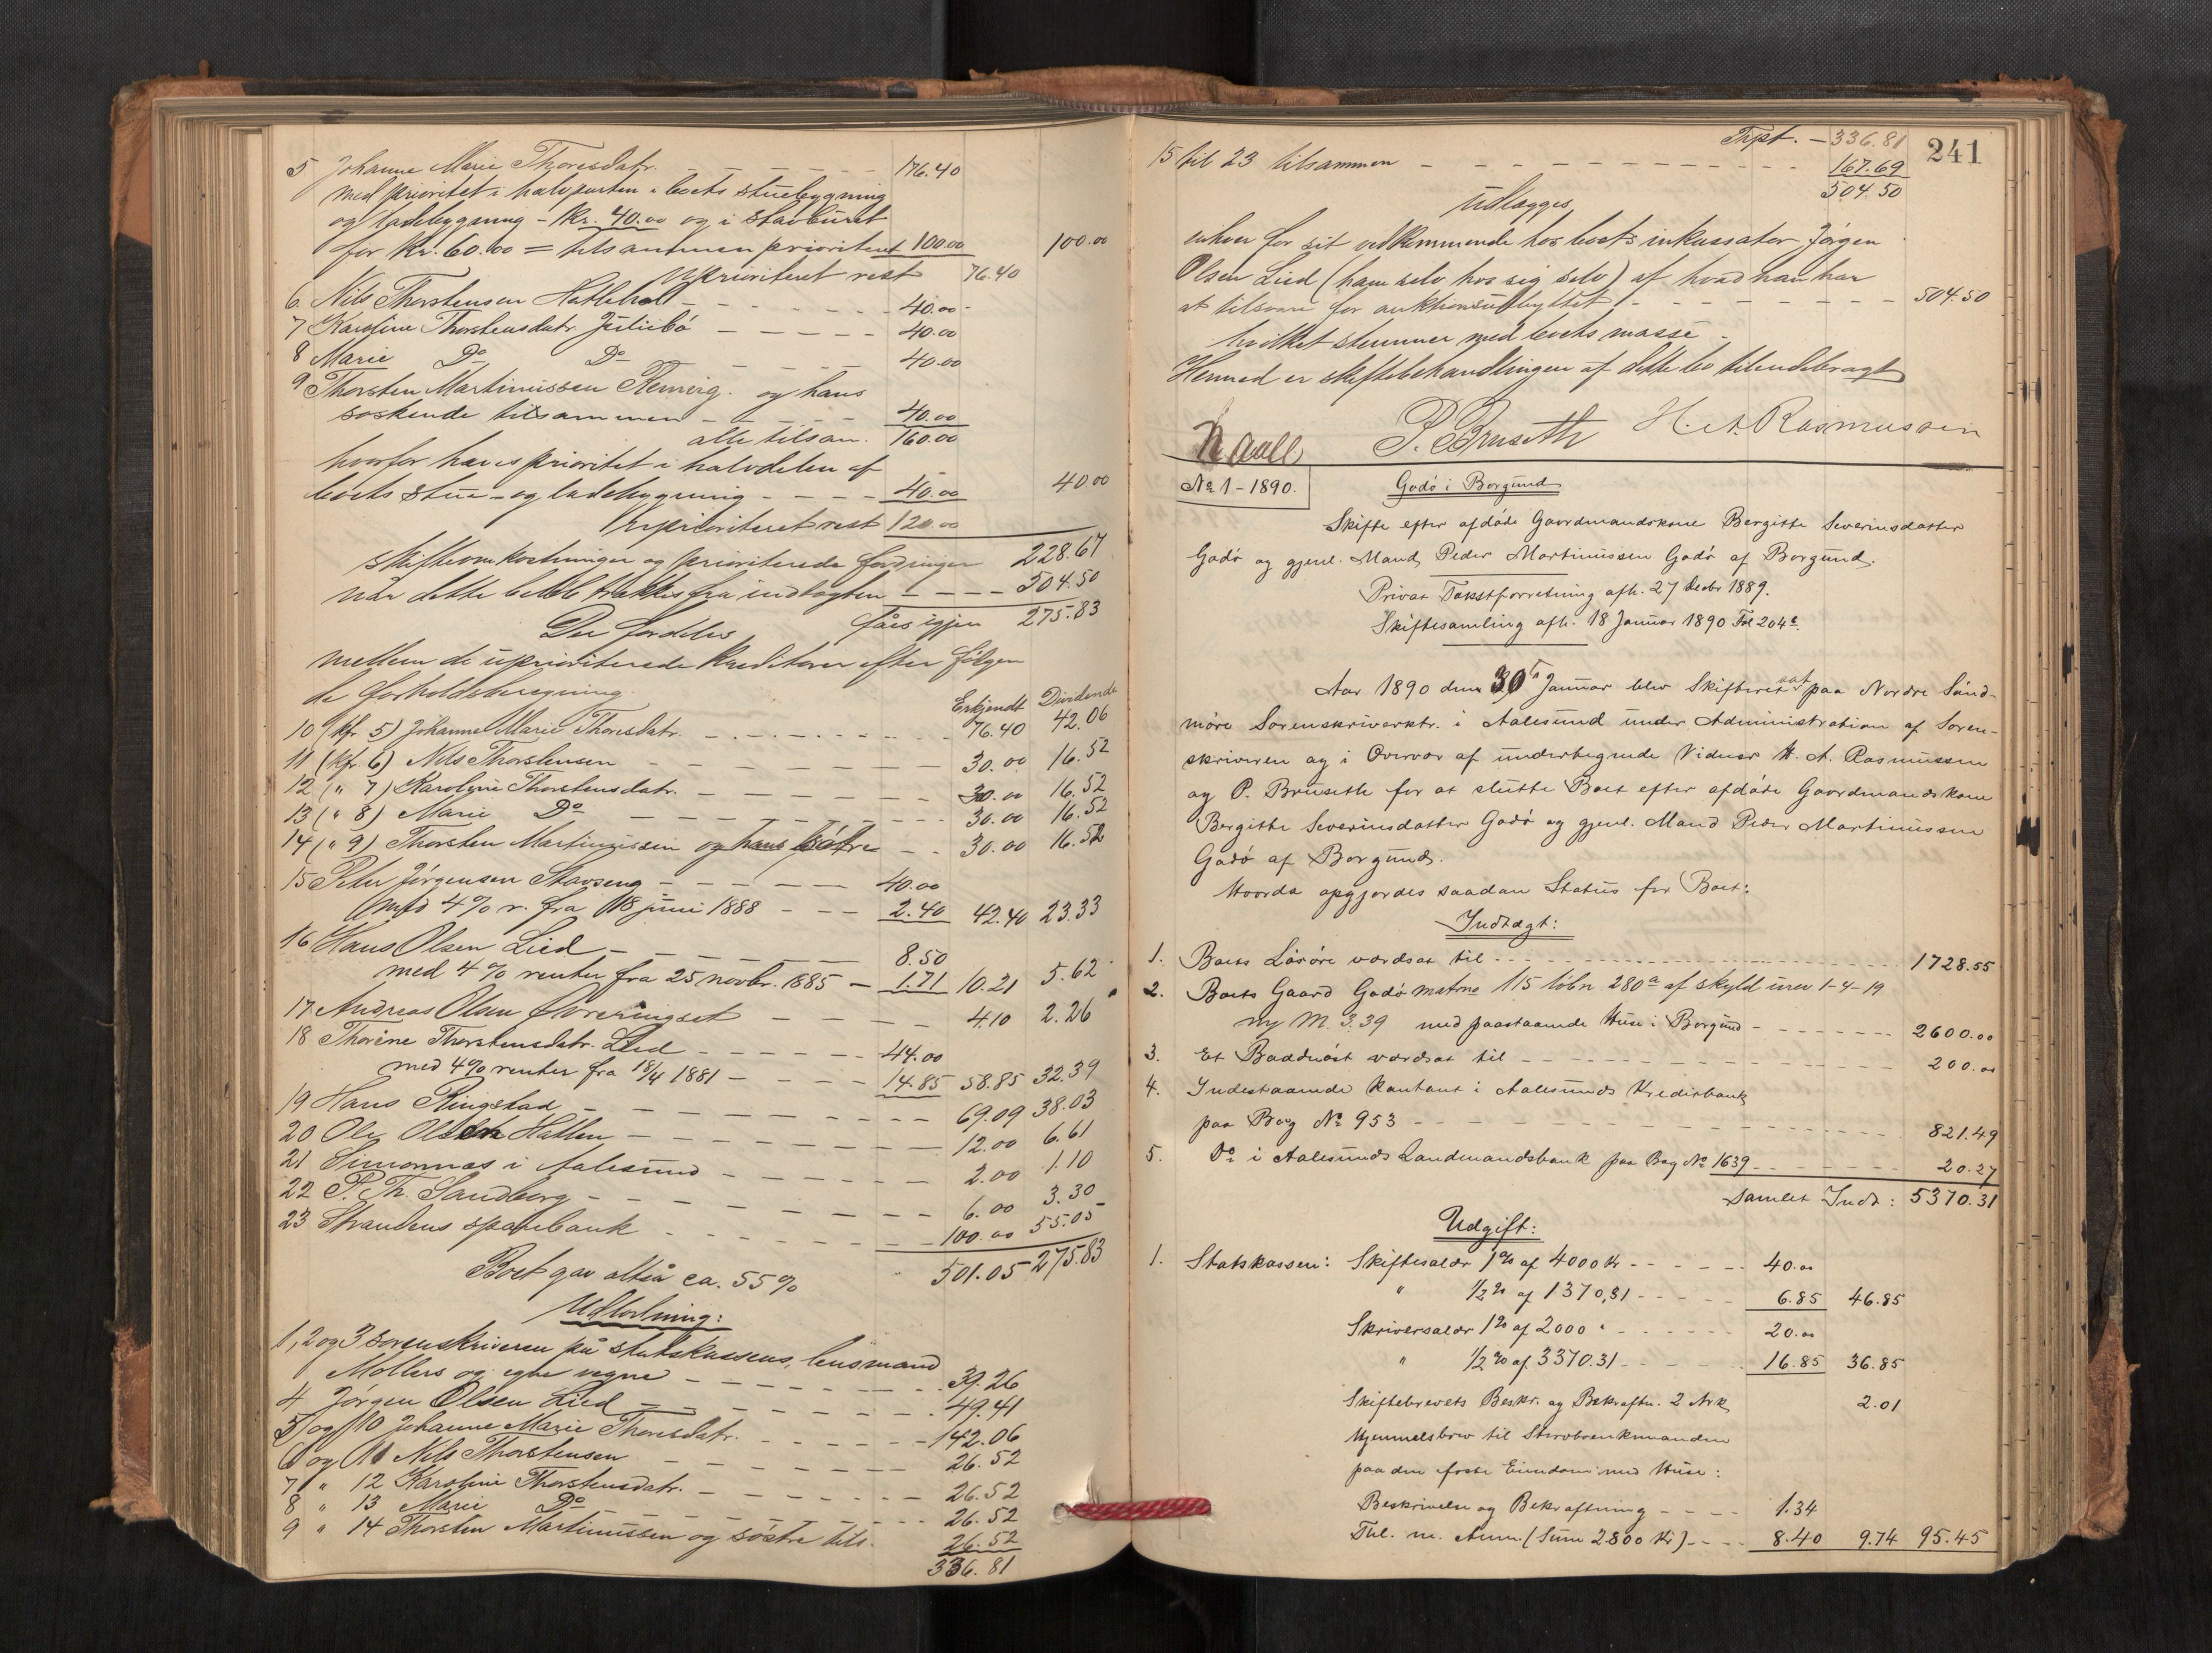 5 Johanne Marie Thoresdatr. 176.40
med prioritet i halvparten i boets stuebygning
og ladebygning - Kr. 40.00 og i stabburet
for Kr. 60.00 = tilsammen prioriteret 100.00 100.00
uprioriteret rest 76.40
6. Nils Thorstensen Hatlehol 40.00
7 Karoline Thorstensdatr. Juliebø 40.00
8 Marie Do Do 40.00
9 Thorsten Martinussen og hans
søskende tilsammen 40.00
alle tilsam. 160.00
hvorfor haves prioritet i halvdelen af
boets stue- og ladebygning 40.00 40.00
Uprioriteret rest 120.00
Skifteomkostninger og prioriterede fordringer 228.67
når dette beløb trækkes fra indtægten 504.50
fåes igjen 275.83
Der fordeles
mellem de uprioriterede kreditorer efter følgen
de forholdsberegning.
Erkjendt Dividende
10 (kfr 5) Johanne Marie Thoresdatr. 76.40 42.06
11 (kfr 6) Nils Thorstensen 30.00 16.52
12 (" 7) Karoline Thorstensdatr. 30.00 16.52
13 (" 8) Marie Do 30.00 16.52
14 (" 9) Thorsten Martinussen og hans søstre 30.00 16.52
15 Peter Jørgensen Stavseng 40.00
med 4% r. fra 18 juni 1888 2.40 42.40 23.33
16 Hans Olsen Lied 8.50
med 4% renter fra 25 novbr. 1885 1.71 10.21 5.62
17 Andreas Olsen 4.10 2.26
18 Thorine Thorstensdatr. Lied 44.00
med 4% renter fra 18/4 1881 14.85 58.85 32.39
19 Hans Ringstad 69.09 38.03
20 Ole Olsen Hatlen 12.00 6.61
21 Simonnæs i Aalesund 2.00 1.10
22 P. Th. Sandborg 6.00 3.30
23 Strandens sparebank 100.00 55.05
501.05 275.83
Boet gav altså ca. 55%
Udlodning:
1, 2 og 3 sorenskriveren på statskassens, lensmand
Møllers og egne vegne 39.26
4 Jørgen Olsen Lied 49.41
5 og 10 Johanne Marie Thoresdatr. 142.06
6 og 11 Nils Thorstensen 26.52
7 " 12 Karoline Thorstensdatr. 26.52
8 " 13 Marie Do 26.52
9 " 14 Thorsten Martinussen og søstre tils. 26.52
336.81
241
Trpt. 336.81
15 til 23 tilsammen 167.69
504.50
Udlægges
enhver for sit vedkommende hos boets inkassator Jørgen
Olsen Lied (ham selv hos sig selv) af hvad han har
at tilsvare for auktionsudbyttet 504.50
hvilket stemmer med boets masse.
Hermed er skiftebehandlingen af dette bo tilendebragt
N Aall P. Bruseth H. A. Rasmussen
No 1 - 1890. Godø i Borgund
Skifte efter afdøde Gaardmandskone Bergitte Severinsdatter
Godø og gjenl. Mand Peder Martinussen Godø af Borgund.
Privat Takstforretning afh. 27 Decbr 1889.
Skiftesamling afh. 18 Januar 1890 Fol 204a.
Aar 1890 den 30te Januar blev Skifteret sat paa Nordre Sønd-
møre Sorenskriverktr. i Aalesund under Administration af Soren-
skriveren og i Overvær af undertegnede Vidner H. A. Rasmussen
og P. Bruseth for at slutte Boet efter afdøde Gaardmandskone
Bergitte Severinsdatter Godø og gjenl. Mand Peder Martinussen
Godø af Borgund.
Hvorda opgjordes saadan Status for Boet:
Indtægt:
1. Boets Løsøre værdsat til 1728.55
2. Boets Gaard Godø matrno 115 løbn 280a af skyld urev 1-4-19
ny M. 3.39 med paastaaende Huse i Borgund 2600.00
3. Et Baadnøst værdsat til 200.00
4. Indestaaende kontant i Aalesunds Kreditbank
paa Bog No 953 821.49
5. Do i Aalesunds Landmandsbank paa Bog No 1639 20.27
Samlet Indt: 5370.31
Udgift:
1. Statskassen: Skiftesalær 1% af 4000 Kr 40.00
" 1/2% af 1370,31 6.85 46.85
Skriversalær 1% af 2000 " 20.00
" 1/2% af 3370.31 16.85 36.85
Skiftebrevets Beskr. og Bekræftn. 2 Ark 2.01
Hjemmelsbrev til Stervboenkemanden
paa den faste Eiendom med Huse:
Beskrivelse og Bekræftning 1.34
Thl. m. Anm. (Sum 2800 Kr) 8.40 9.74 95.45